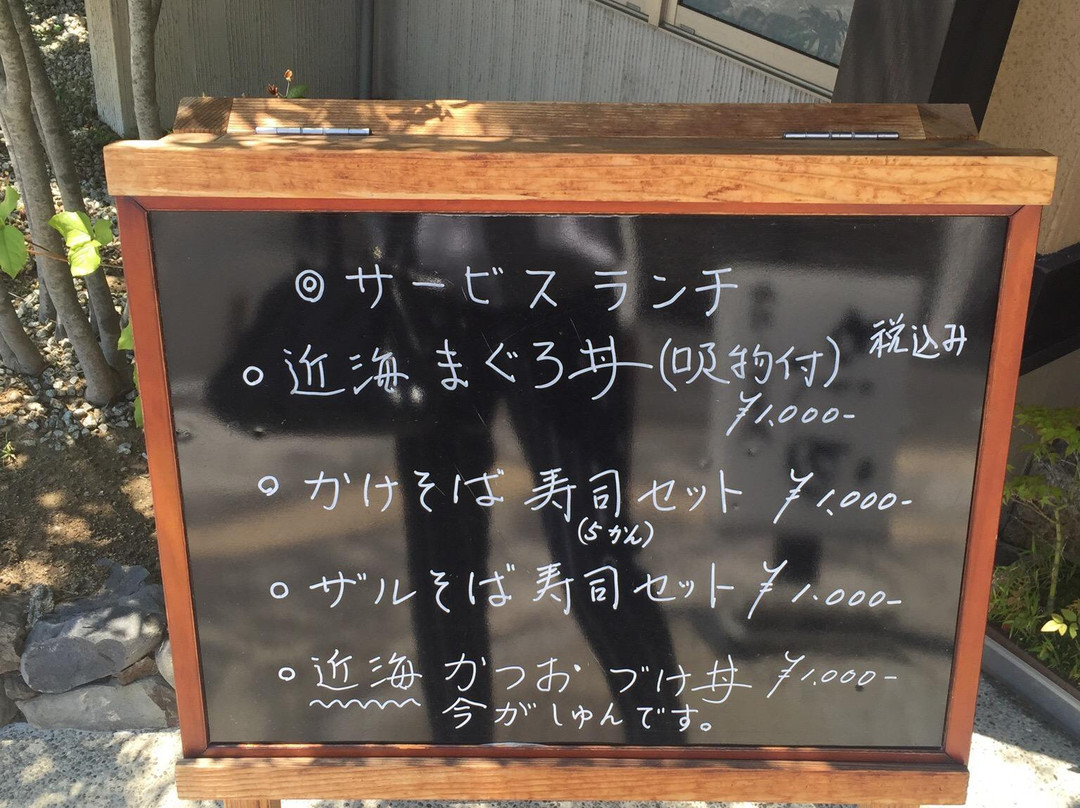 ◎サービスランチ
○近海まぐろ丼(吸物付) 税込み
¥1.000-
○かけそば寿司セット ¥1.000-
(5かん)
○ザルそば寿司セット ¥1.000-
○近海かつおづけ丼 ¥1.000-
今がしゅんです。